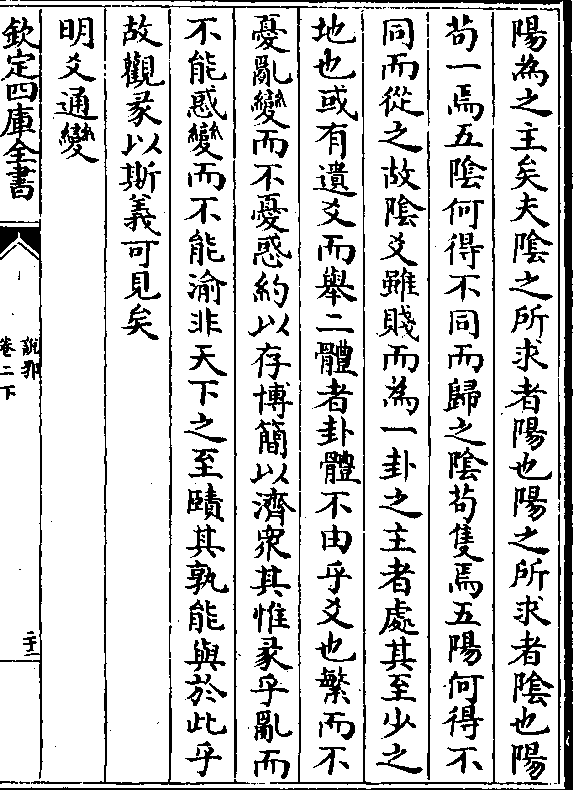 陽為之主矣夫陰之所求者陽也陽之所求者陰也陽
苟一焉五陰何得不同而歸之陰苟隻焉五陽何得不
同而從之故陰爻雖賤而為一卦之主者處其至少之
地也或有遺爻而舉二體者卦體不由乎爻也繁而不
憂亂變而不憂惑約以存博簡以濟衆其惟彖乎亂而
不能惑變而不能渝非天下之至賾其孰能與於此乎
故觀彖以斯義可見矣
明爻通變
欽定四庫全書
說郛
卷二下
二十二